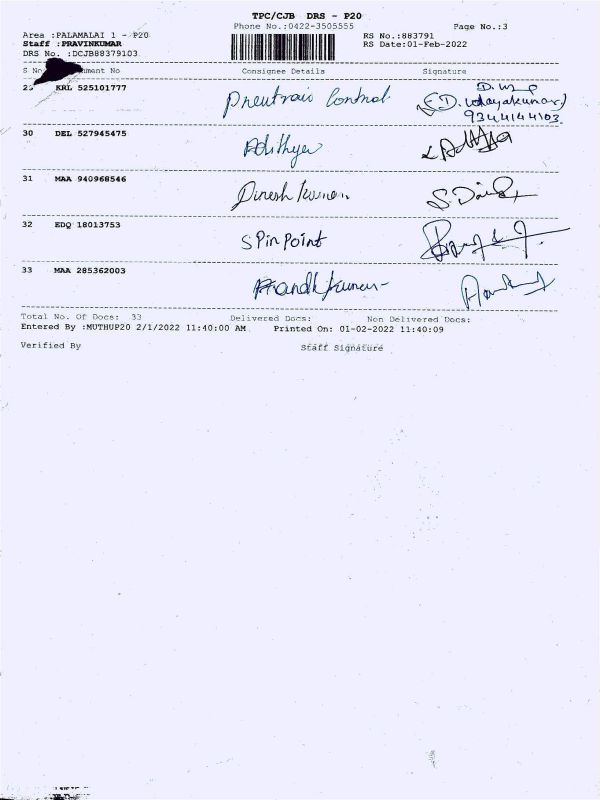 TPC/CJB DRS - P20
Phone No.:0422-3505555 Page No.:3
Area :PALAMALAI 1 - P20 RS No.:883791
Staff :PRAVINKUMAR RS Date:01-Feb-2022
DRS No. :DCJB88379103
S No ument No Consignee Details Signature
KRL 525101777 Control D.
(D. Udayakumar)
9344144103
30 DEL 527945475 Adithya
31 MAA 940968546 Dinesh kumar
32 EDQ 18013753 SPin Point
33 MAA 285362003
Total No. Of Docs: 33 Delivered Docs: Non Delivered Docs:
Entered By :MUTHUP20 2/1/2022 11:40:00 AM Printed On: 01-02-2022 11:40:09
Verified By Staff Signature